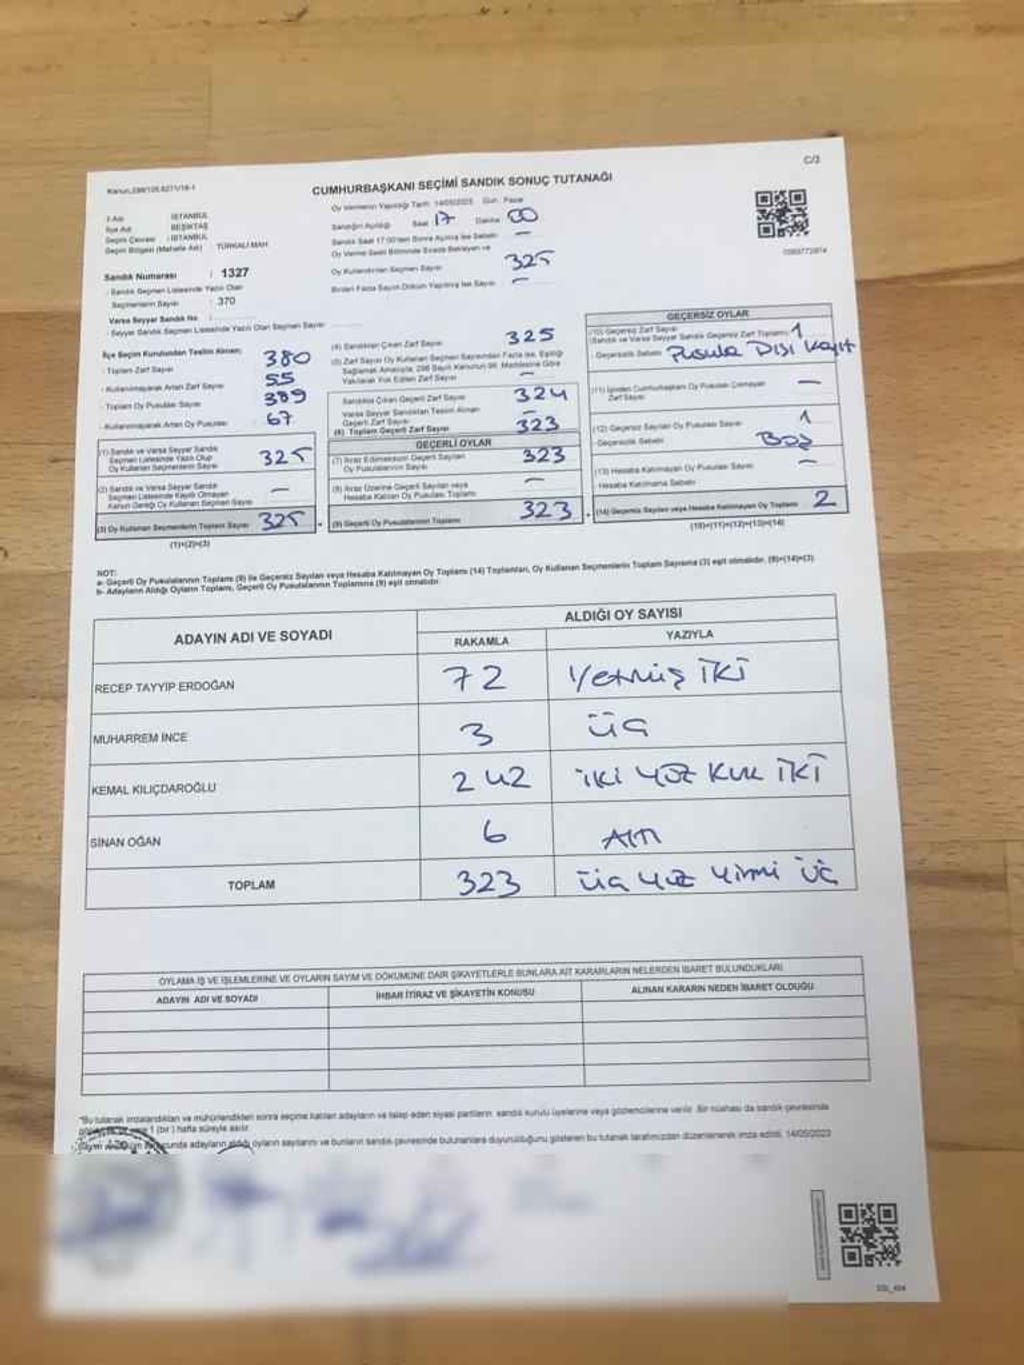 C/3
Kanun.298/105.6271/18-1
CUMHURBAŞKANI SEÇİMİ SANDIK SONUÇ TUTANAĞI
İl Adı : İSTANBUL
İlçe Adı : BEŞİKTAŞ
Seçim Çevresi : İSTANBUL
Seçim Bölgesi (Mahalle Adı) TÜRKALİ MAH
Sandık Numarası : 1327
- Sandık Seçmen Listesinde Yazılı Olan
Seçmenlerin Sayısı : 370
Varsa Seyyar Sandık No :
- Seyyar Sandık Seçmen Listesinde Yazılı Olan Seçmen Sayısı
Oy Vermenin Yapıldığı Tarih: 14/05/2023 Gün: Pazar
Sandığın Açıldığı Saat 17 Dakika 00
Sandık Saat 17:00'den Sonra Açılmış İse Sebebi —
Oy Verme Saati Bitiminde Sırada Bekleyen ve
Oy Kullandırılan Seçmen Sayısı 325
Birden Fazla Sayım Döküm Yapılmış İse Sayısı —
İlçe Seçim Kurulundan Teslim Alınan;
- Toplam Zarf Sayısı 380
- Kullanılmayarak Artan Zarf Sayısı 55
- Toplam Oy Pusulası Sayısı 389
- Kullanılmayarak Artan Oy Pusulası 67
(1) Sandık ve Varsa Seyyar Sandık
Seçmen Listesinde Yazılı Olup
Oy Kullanan Seçmenlerin Sayısı 325
(2) Sandık ve Varsa Seyyar Sandık
Seçmen Listesinde Kayıtlı Olmayan
Kanun Gereği Oy Kullanan Seçmen Sayısı —
(3) Oy Kullanan Seçmenlerin Toplam Sayısı 325
(1)+(2)=(3)
(4) Sandıktan Çıkan Zarf Sayısı 325
(5) Zarf Sayısı Oy Kullanan Seçmen Sayısından Fazla ise, Eşitliği
Sağlamak Amacıyla; 298 Sayılı Kanunun 98. Maddesine Göre
Yakılarak Yok Edilen Zarf Sayısı —
Sandıkta Çıkan Geçerli Zarf Sayısı 324
Varsa Seyyar Sandıktan Teslim Alınan
Geçerli Zarf Sayısı —
(6) Toplam Geçerli Zarf Sayısı 323
GEÇERLİ OYLAR
(7) İtiraz Edilmeksizin Geçerli Sayılan
Oy Pusulalarının Sayısı 323
(8) İtiraz Üzerine Geçerli Sayılan veya
Hesaba Katılan Oy Pusulası Toplamı —
(9) Geçerli Oy Pusulalarının Toplamı 323
GEÇERSİZ OYLAR
(10) Geçersiz Zarf Sayısı
(Sandık ve Varsa Seyyar Sandık Geçersiz Zarf Toplamı) 1
- Geçersizlik Sebebi Pusula Dışı kayıt
(11) İçinden Cumhurbaşkanı Oy Pusulası Çıkmayan
Zarf Sayısı —
(12) Geçersiz Sayılan Oy Pusulası Sayısı 1
- Geçersizlik Sebebi Boş
(13) Hesaba Katılmayan Oy Pusulası Sayısı —
- Hesaba Katılmama Sebebi
(14) Geçersiz Sayılan veya Hesaba Katılmayan Oy Toplamı 2
(10)+(11)+(12)+(13)=(14)
NOT:
a- Geçerli Oy Pusulalarının Toplamı (9) ile Geçersiz Sayılan veya Hesaba Katılmayan Oy Toplamı (14) Toplamları, Oy Kullanan Seçmenlerin Toplam Sayısına (3) eşit olmalıdır. (9)+(14)=(3)
b- Adayların Aldığı Oyların Toplamı, Geçerli Oy Pusulalarının Toplamına (9) eşit olmalıdır.
ADAYIN ADI VE SOYADI
ALDIĞI OY SAYISI
RAKAMLA YAZIYLA
RECEP TAYYIP ERDOĞAN 72 Yetmiş iki
MUHARREM İNCE 3 üç
KEMAL KILIÇDAROĞLU 242 iki yüz kırk iki
SİNAN OĞAN 6 Altı
TOPLAM 323 üç yüz yirmi üç
OYLAMA İŞ VE İŞLEMLERİNE VE OYLARIN SAYIM VE DÖKÜMÜNE DAİR ŞİKAYETLERLE BUNLARA AİT KARARLARIN NELERDEN İBARET BULUNDUKLARI
ADAYIN ADI VE SOYADI İHBAR İTİRAZ VE ŞİKAYETİN KONUSU ALINAN KARARIN NEDEN İBARET OLDUĞU
*Bu tutanak imzalandıktan ve mühürlendikten sonra seçime katılan adayların ve talep eden siyasi partilerin sandık kurulu üyelerine veya gözlemcilerine verilir. Bir nüshası da sandık çevresinde
1 (bir) hafta süreyle asılır.
adayların aldığı oyların sayılarını ve bunların sandık çevresinde bulunanlara duyurulduğunu gösteren bu tutanak tarafımızdan düzenlenerek imza edildi. 14/05/2023